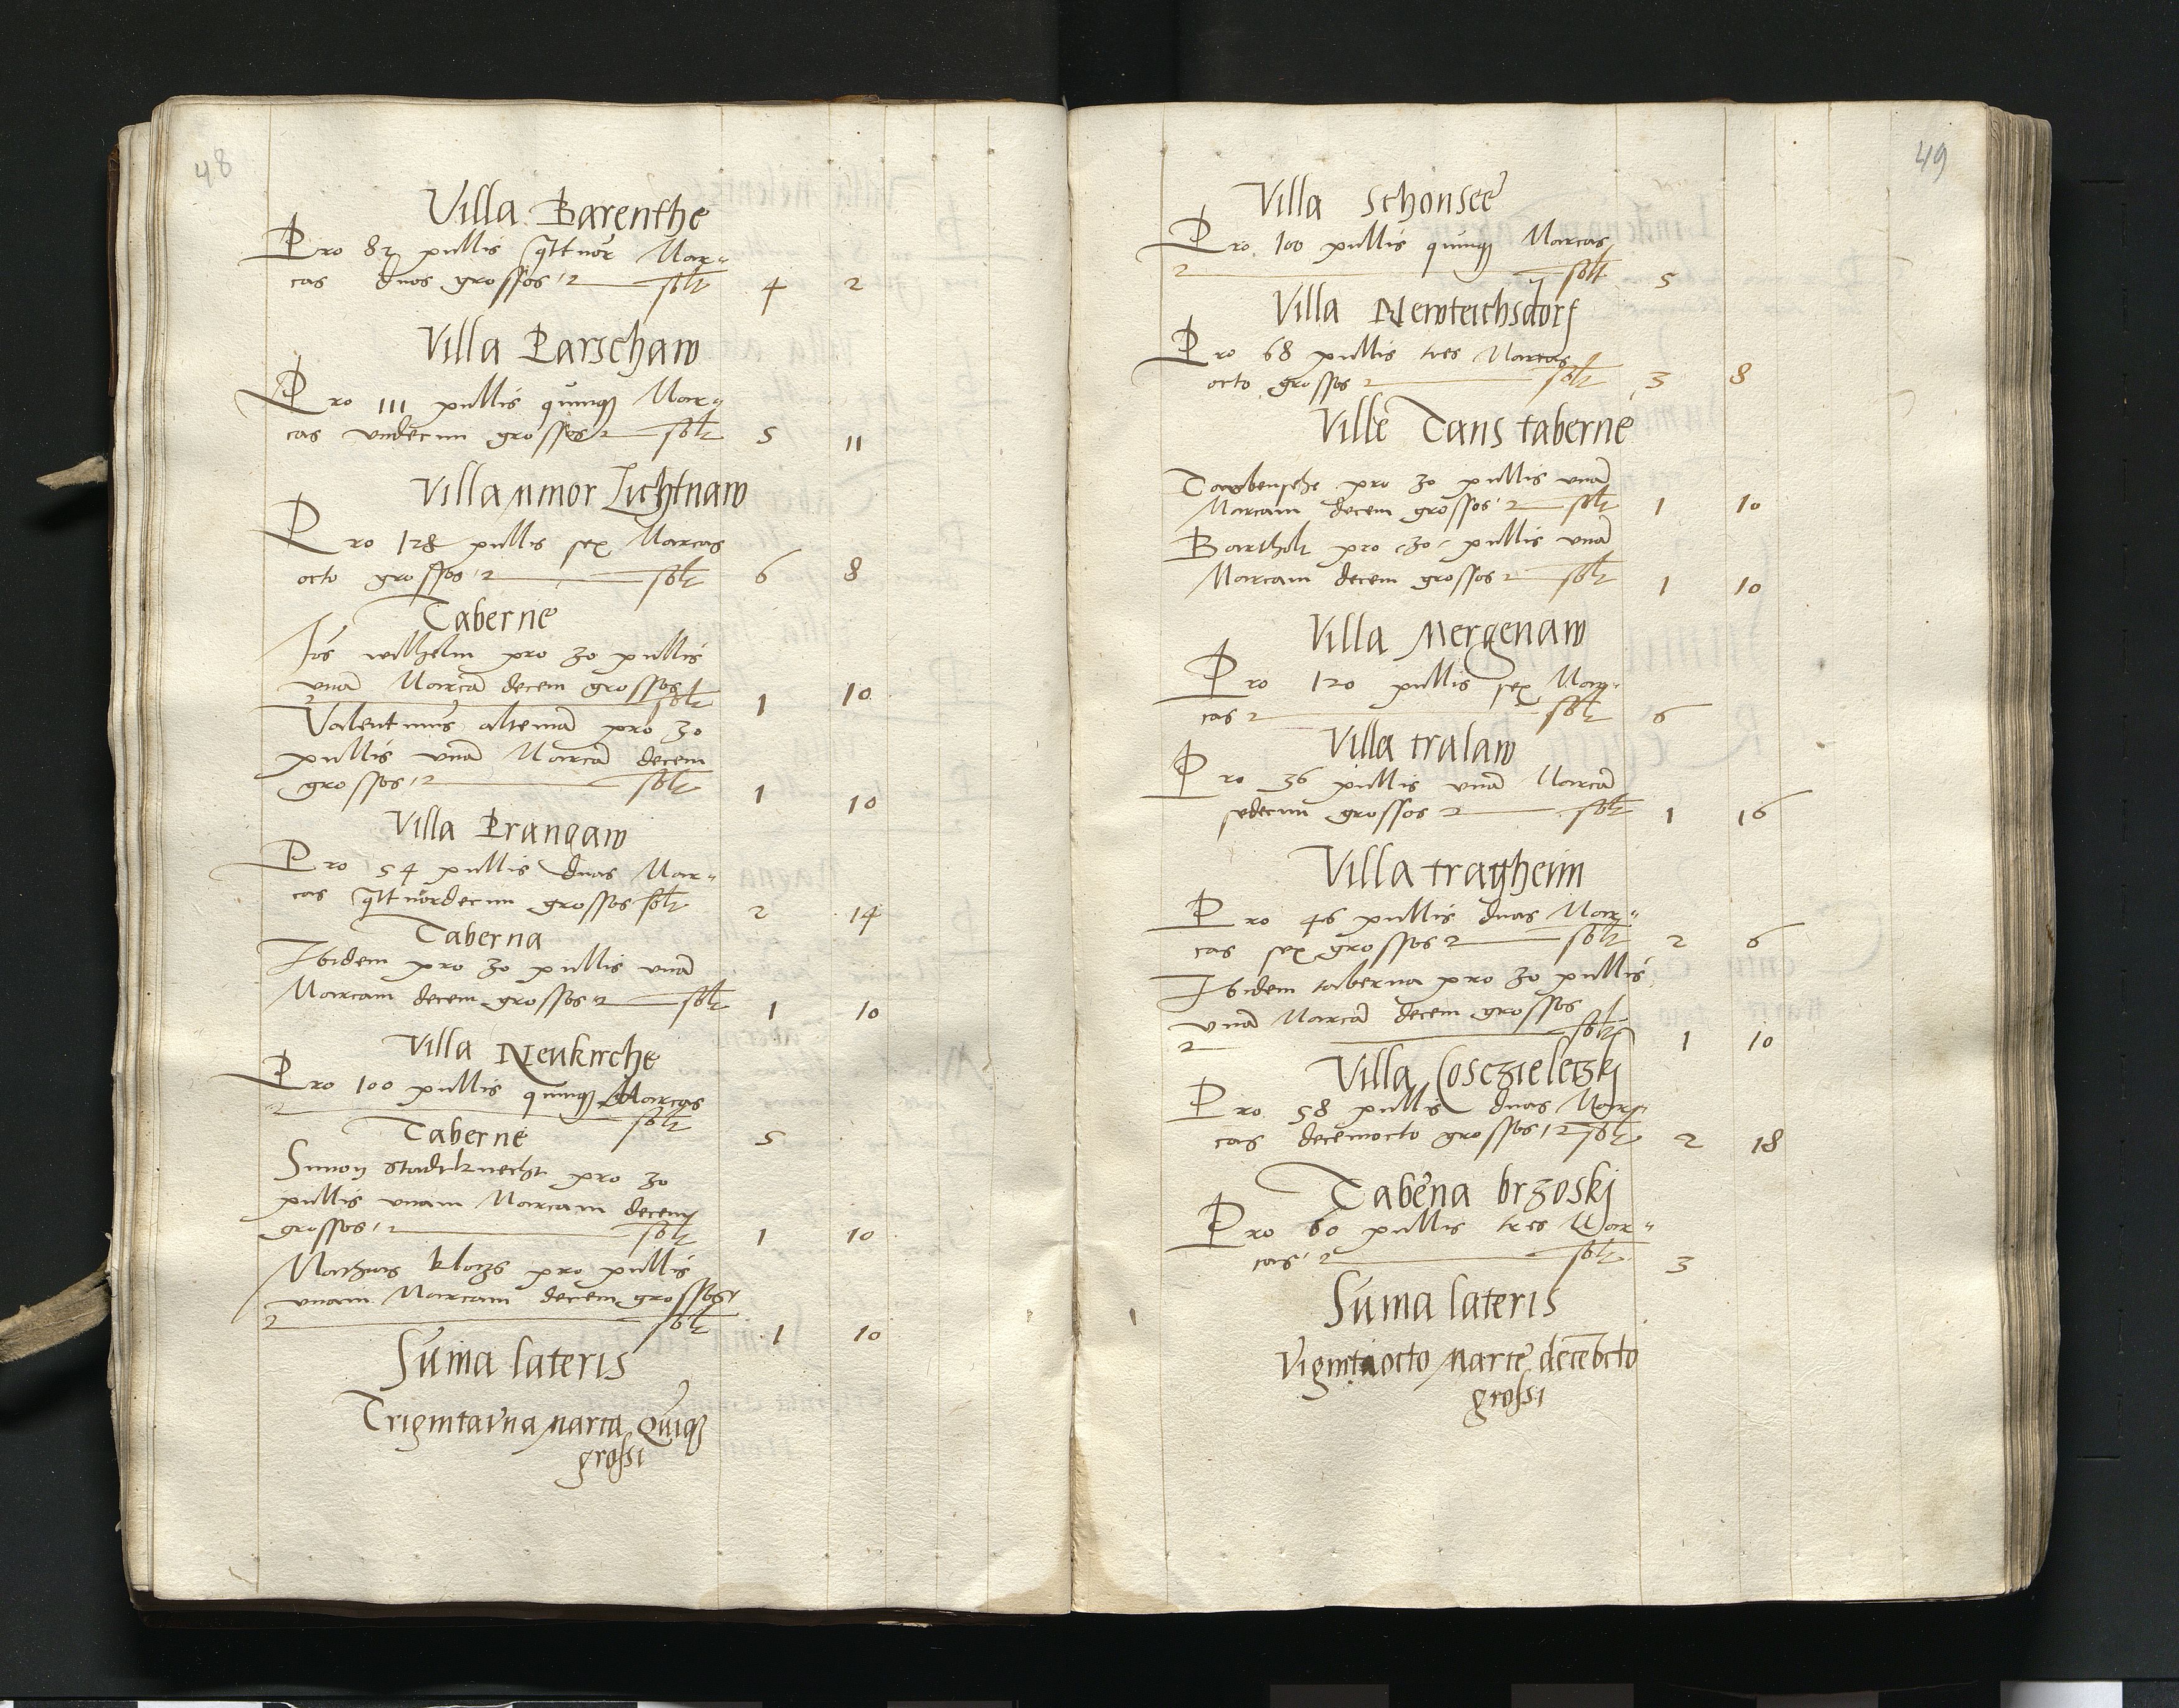 48
Villa Barenthe
Pro 82 pullis qttuor Mar„
cas duos grossos solt 4 2
Villa Parschaw
Pro 111 pullis quinq3 Mar„
cas undecim grossos solt 5 11
Villa minor Lichtnaw
Pro 128 pullis sex Marcas
octo grossos solt 6 8
Taberne
Jos wilhelm pro 30 pullis
unā Marcā decem grossos
solt 1 10
Valentinus altemā pro 30
pullis unā Marcā decem
grossos solt 1 10
Villa Prangaw
Pro 54 pullis duas Mar„
cas qttuordecim grossos solt 2 14
Taberna
Ibidem pro 30 pullis unā
Marcam decem grossos solt 1 10
Villa Neukirche
Pro 100 pullis quinq3 Marcas
solt 5
Taberne
Simon Stadtknecht pro 30
pullis unam Marcam decem
grossos solt 1 10
Mathias klotzs pro pullis
unam Marcam decem grossos
solt 1 10
Suma lateris
Trigintauna marca Quiq3
grossi
49
Villa Schonsee
Pro 100 pullis quinq3 Marcas
solt 5
Villa Newteichsdorf
Pro 68 pullis tres Marcas
octo grossos solt 3 8
Ville Dans taberne
Taubensehe pro 30 pullis unā
Marcam decem grossos solt 1 10
Bartholt pro 30 pullis unā
Marcam decem grossos solt 1 10
Villa Mergenaw
Pro 120 pullis sex Mar„
cas solt 6
Villa tralaw
Pro 36 pullis unā Marcā
sedecim grossos solt 1 16
Villa tragheim
Pro 46 pullis duas Mar„
cas sex grossos solt 2 6
Ibidem taberna pro 30 pullis
unā Marcā decem grossos
solt 1 10
Villa Cosczieletzkj
Pro 58 pullis duas Mar„
cas decemocto grossos solt 2 18
Tabe'na brzoskj
Pro 60 pullis tres Mar„
cas solt 3
Suma lateris
Vigintiocto marce decēocto
grossi